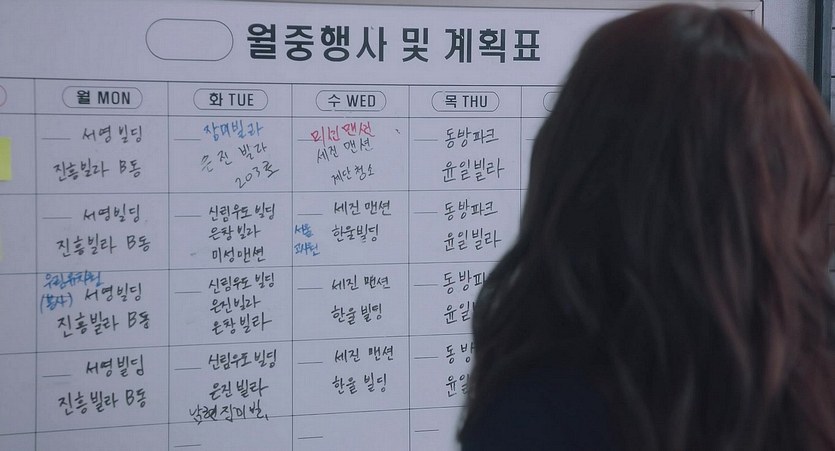 월중행사 및 계획표
월 MON
화 TUE
수 WED
목 THU
서영빌딩
진흥빌라 B동
장미빌라
은진 빌라
203호
미선맨션
세진 맨션
계단청소
동방파크
윤일빌라
서영빌딩
진흥빌라 B동
신림우도빌딩
은창빌라
미성맨션
세진맨션
한울빌딩
동방파크
윤일빌라
서영빌딩
진흥빌라 B동
신림우도 빌딩
은진빌라
은창 빌라
세진 맨션
한울 빌딩
동방파
윤일빌
서영빌딩
진흥빌라 B동
신림우도 빌딩
은진 빌라
세진 맨션
한울 빌딩
동방
윤일